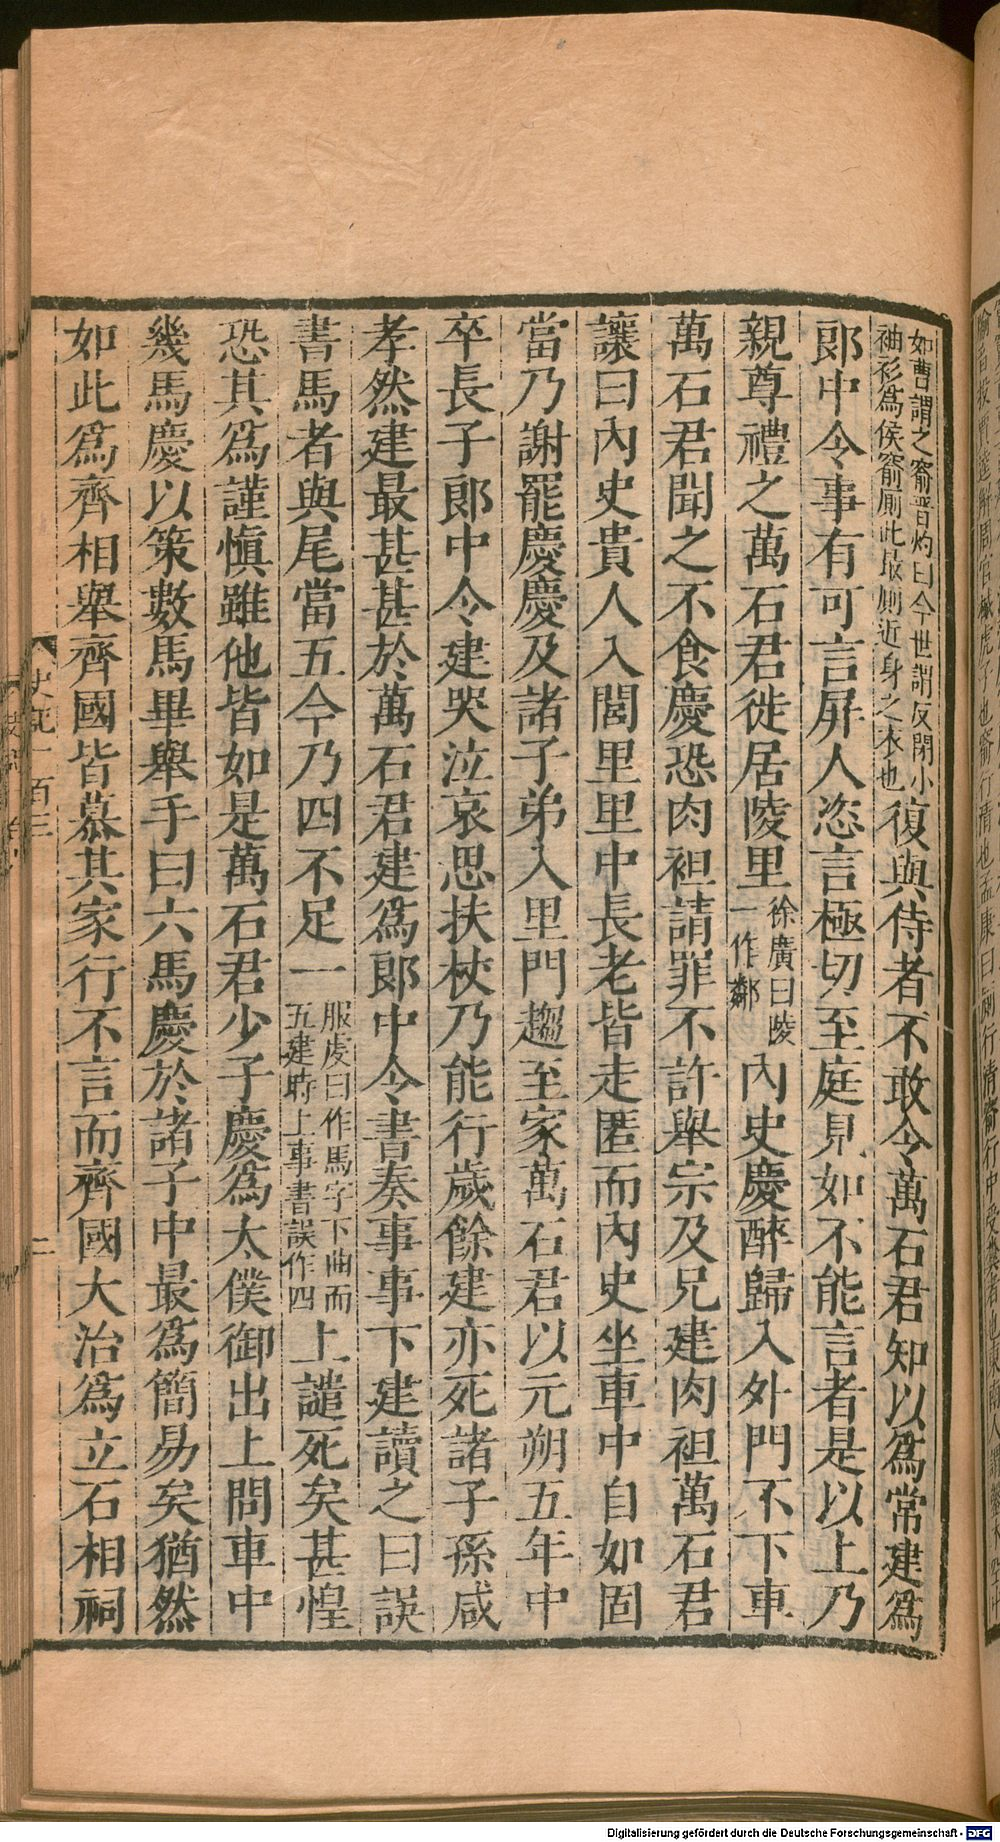 如曹謂之窬晉灼曰今世謂反閉小
袖衫爲侯窬廁此最廁近身之衣也
復與侍者不敢令萬石君知以爲常建爲
郎中令事有可言屏人恣言極切至庭見如不能言者是以上乃
親尊禮之萬石君徙居陵里
徐廣曰陵
一作鄰
內史慶醉歸入外門不下車
萬石君聞之不食慶恐肉袒請罪不許舉宗及兄建肉袒萬石君
讓曰內史貴人入閭里里中長老皆走匿而內史坐車中自如固
當乃謝罷慶慶及諸子弟入里門趨至家萬石君以元朔五年中
卒長子郎中令建哭泣哀思扶杖乃能行歲餘建亦死諸子孫咸
孝然建最甚甚於萬石君建爲郎中令書奏事事下建讀之曰誤
書馬者與尾當五今乃四不足一
服虔曰作馬字下曲而
五建時上事書誤作四
上譴死矣甚惶
恐其爲謹愼雖他皆如是萬石君少子慶爲太僕御出上問車中
幾馬慶以策數馬畢舉手曰六馬慶於諸子中最爲簡易矣猶然
如此爲齊相舉齊國皆慕其家行不言而齊國大治爲立石相祠
史記一百三
二
Digitalisierung gefördert durch die Deutsche Forschungsgemeinschaft - DFG